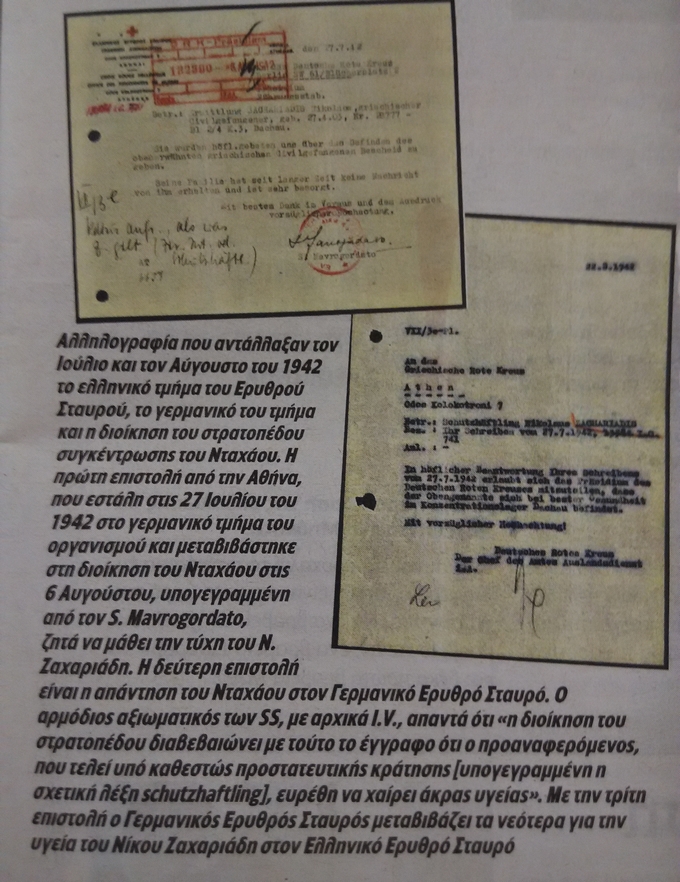 den 27.7.42
D R K - Präsidium
Betr.: ZACHARIADIS Nikolaus, griechischer
Civilgefangener, geb. 27.4.03, Nr.
Bl 2/4 K.3, Dachau.
Sie werden höfl. gebeten uns über den Befinden des
obenerwähnten griechischen Civilgefangenen Bescheid zu
geben.
Seine Familie hat seit langer Zeit keine Nachricht
von ihm erhalten und ist sehr besorgt.
Mit besten Dank im Voraus und den Ausdruck
vorzüglicher Hochachtung.
S. Mavrogordato
22.8.1942
VII/3e-
An das
Griechische Rote Kreuz
A t h e n
Odos Kolokotroni 7
Betr.: Schutzhäftling Nikolaus ZACHARIADIS
Bez.: Ihr Schreiben vom 27.7.1942,
741
Anl.: -
In höflicher Beantwortung Ihres Schreibens
vom 27.7.1942 erlaubt sich das Präsidium des
Deutschen Roten Kreuzes mitzuteilen, dass
der Obengenannte sich bei bester Gesundheit
im Konzentrationslager Dachau befindet.
Mit vorzüglicher Hochachtung!
Deutsches Rotes Kreuz
Der Chef des Amtes Auslandsdienst
Αλληλογραφία που αντάλλαξαν τον
Ιούλιο και τον Αύγουστο του 1942
το ελληνικό τμήμα του Ερυθρού
Σταυρού, το γερμανικό του τμήμα
και η διοίκηση του στρατοπέδου
συγκέντρωσης του Νταχάου. Η
πρώτη επιστολή από την Αθήνα,
που εστάλη στις 27 Ιουλίου του
1942 στο γερμανικό τμήμα του
οργανισμού και μεταβιβάστηκε
στη διοίκηση του Νταχάου στις
6 Αυγούστου, υπογεγραμμένη
από τον S. Mavrogordato,
ζητά να μάθει την τύχη του Ν.
Ζαχαριάδη. Η δεύτερη επιστολή
είναι η απάντηση του Νταχάου στον Γερμανικό Ερυθρό Σταυρό. Ο
αρμόδιος αξιωματικός των SS, με αρχικά I.V., απαντά ότι «η διοίκηση του
στρατοπέδου διαβεβαιώνει με τούτο το έγγραφο ότι ο προαναφερόμενος,
που τελεί υπό καθεστώς προστατευτικής κράτησης [υπογεγραμμένη η
σχετική λέξη schutzhaftling], ευρέθη να χαίρει άκρας υγείας». Με την τρίτη
επιστολή ο Γερμανικός Ερυθρός Σταυρός μεταβιβάζει τα νεότερα για την
υγεία του Νίκου Ζαχαριάδη στον Ελληνικό Ερυθρό Σταυρό